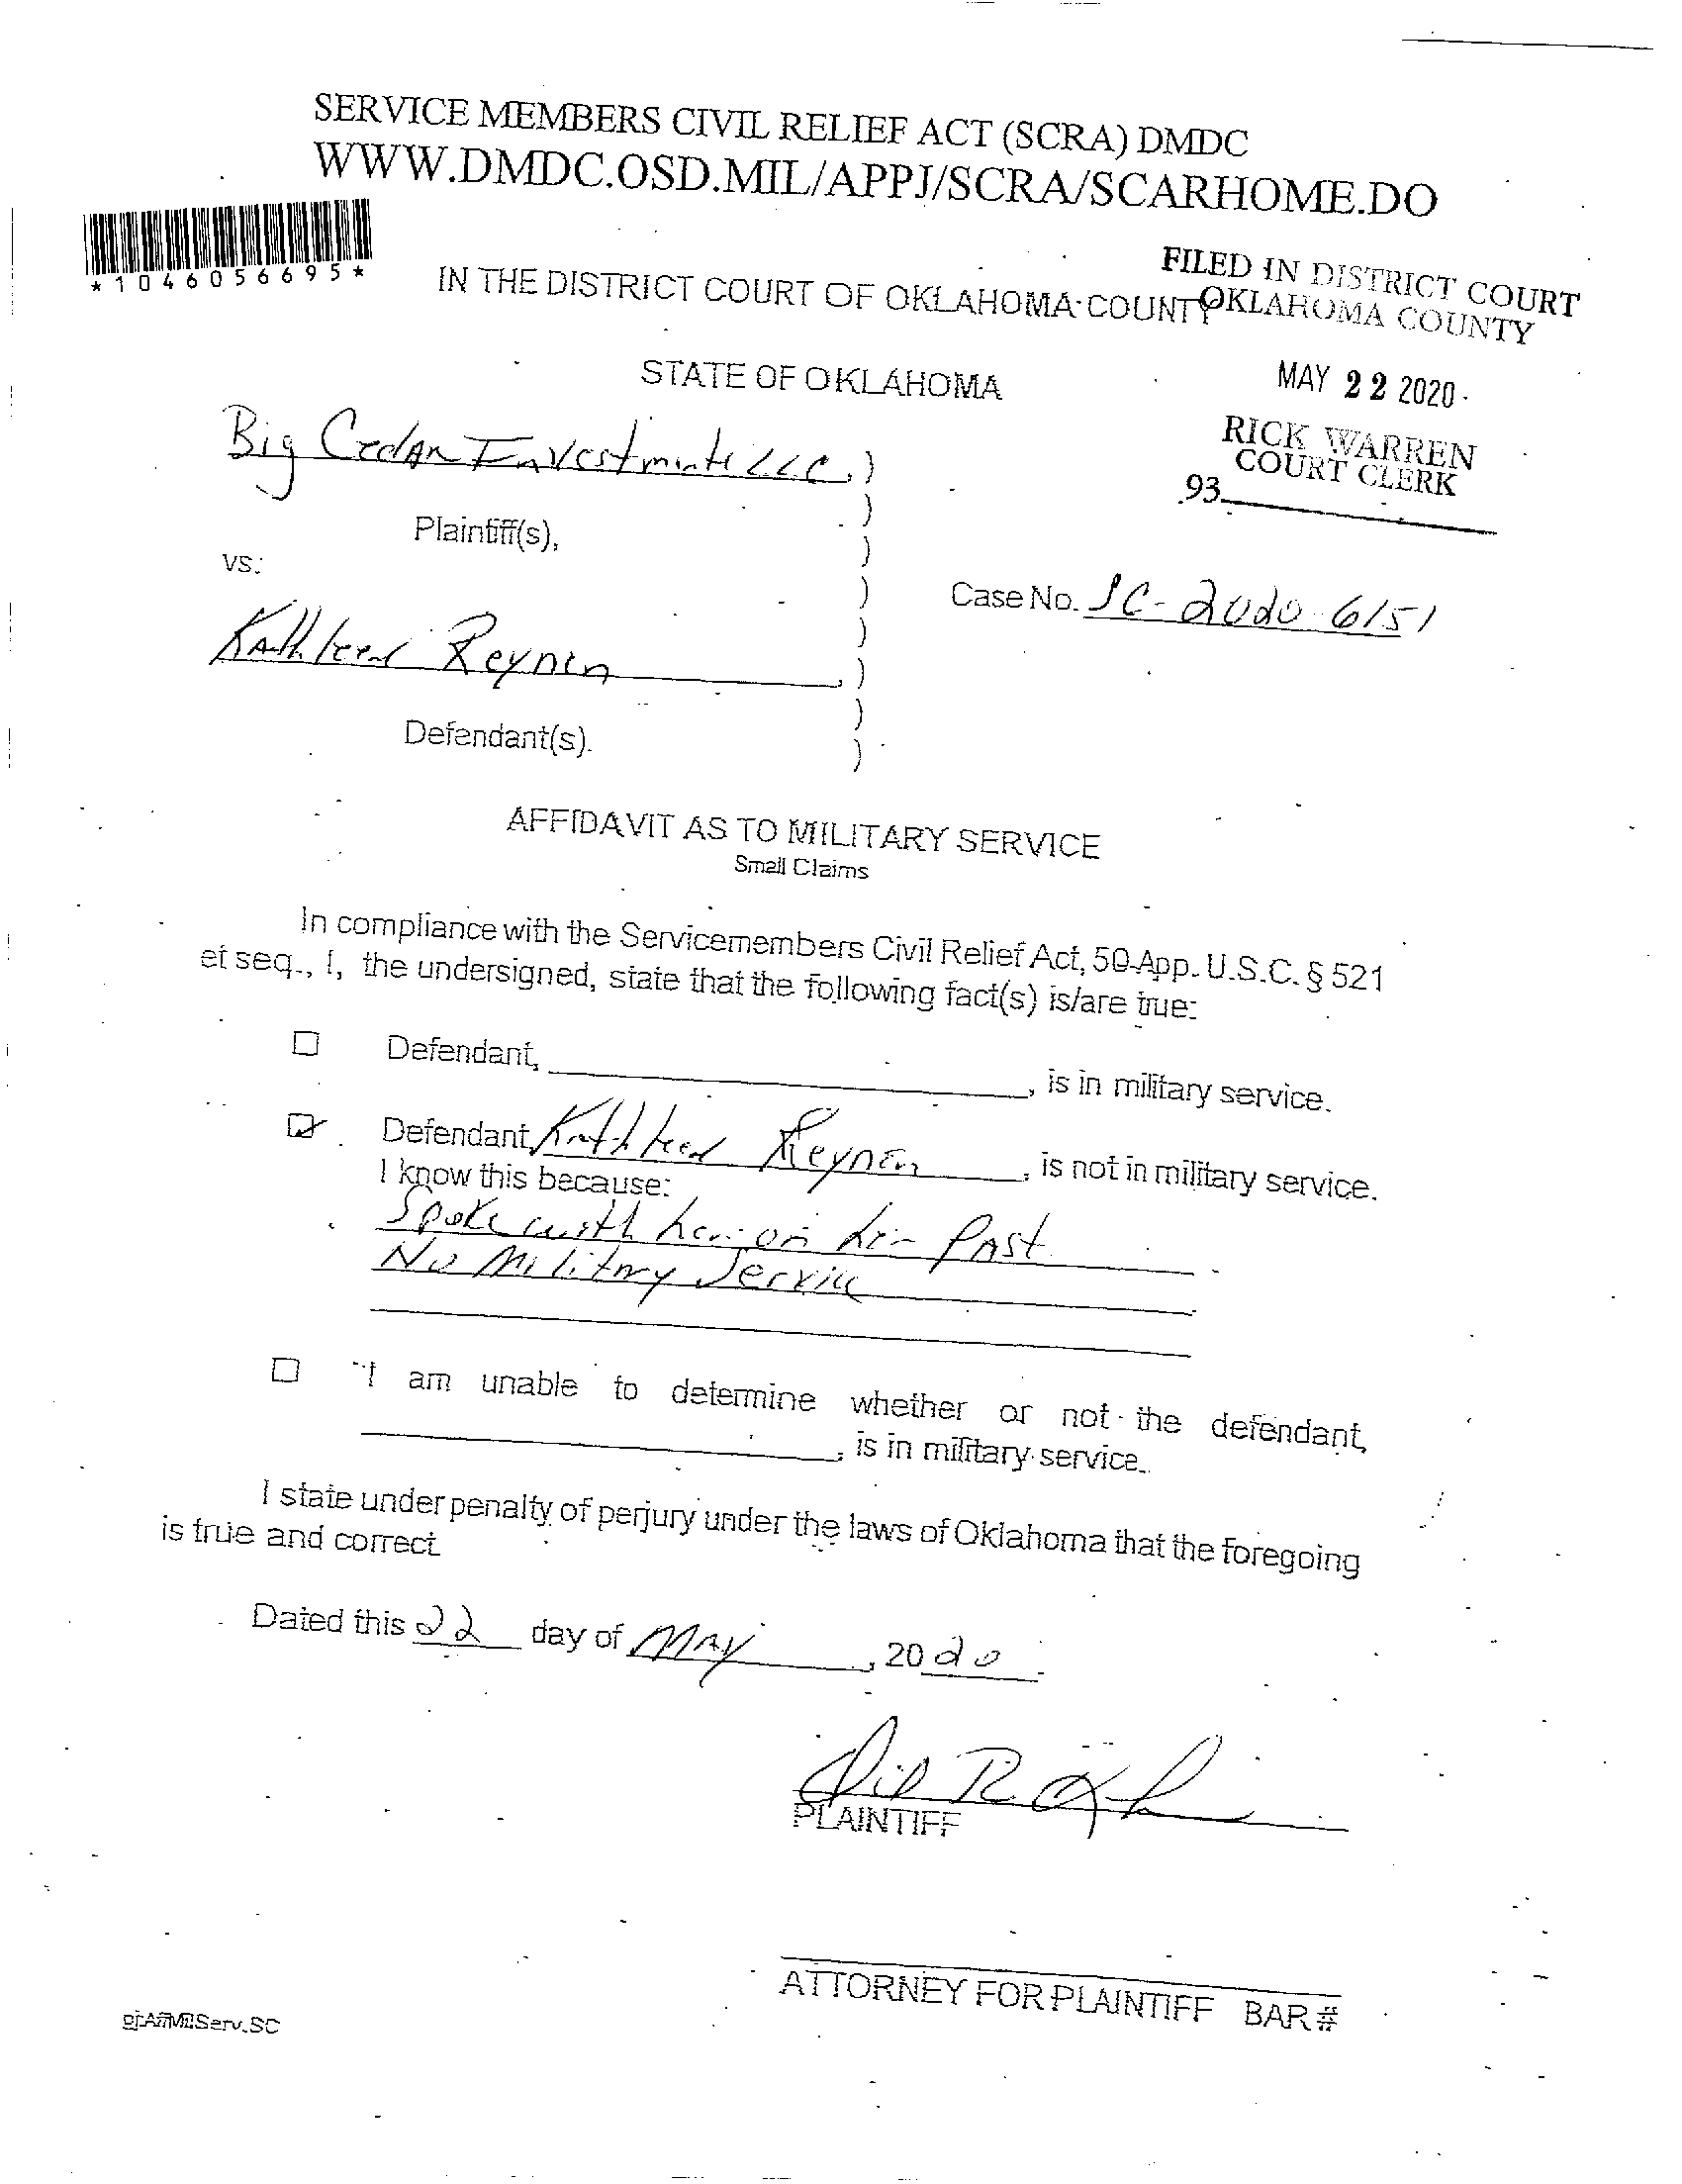 SERVICE MEMBERS CIVIL RELIEF ACT (SCRA) DMDC
WWW.DMDC.OSD.MIL/APPJ/SCRA/SCARHOME.DO
*1046056695*
FILED IN DISTRICT COURT
OKLAHOMA COUNTY
IN THE DISTRICT COURT OF OKLAHOMA COUNTY
STATE OF OKLAHOMA
MAY 22 2020
RICK WARREN
COURT CLERK
93
Big Cedar Investments LLC, )
Plaintiff(s), )
vs. )
Case No. SC-2020-6151
Kathleen Reynen, )
Defendant(s). )
AFFIDAVIT AS TO MILITARY SERVICE
Small Claims
In compliance with the Servicemembers Civil Relief Act, 50 App. U.S.C. § 521
et seq., I, the undersigned, state that the following fact(s) is/are true:
☐ Defendant, , is in military service.
☑ Defendant, Kathleen Reynen, is not in military service.
I know this because:
Spoke with her on her Past
No Military Service
☐ I am unable to determine whether or not the defendant,
, is in military service.
I state under penalty of perjury under the laws of Oklahoma that the foregoing
is true and correct.
Dated this 22 day of MAY, 2020.
PLAINTIFF
ATTORNEY FOR PLAINTIFF BAR #
gj:AffMilServ.SC